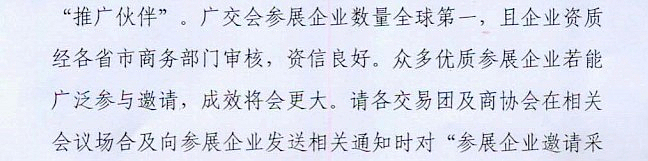 “推广伙伴”。广交会参展企业数量全球第一，且企业资质
经各省市商务部门审核，资信良好。众多优质参展企业若能
广泛参与邀请，成效将会更大。请各交易团及商协会在相关
会议场合及向参展企业发送相关通知时对“参展企业邀请采